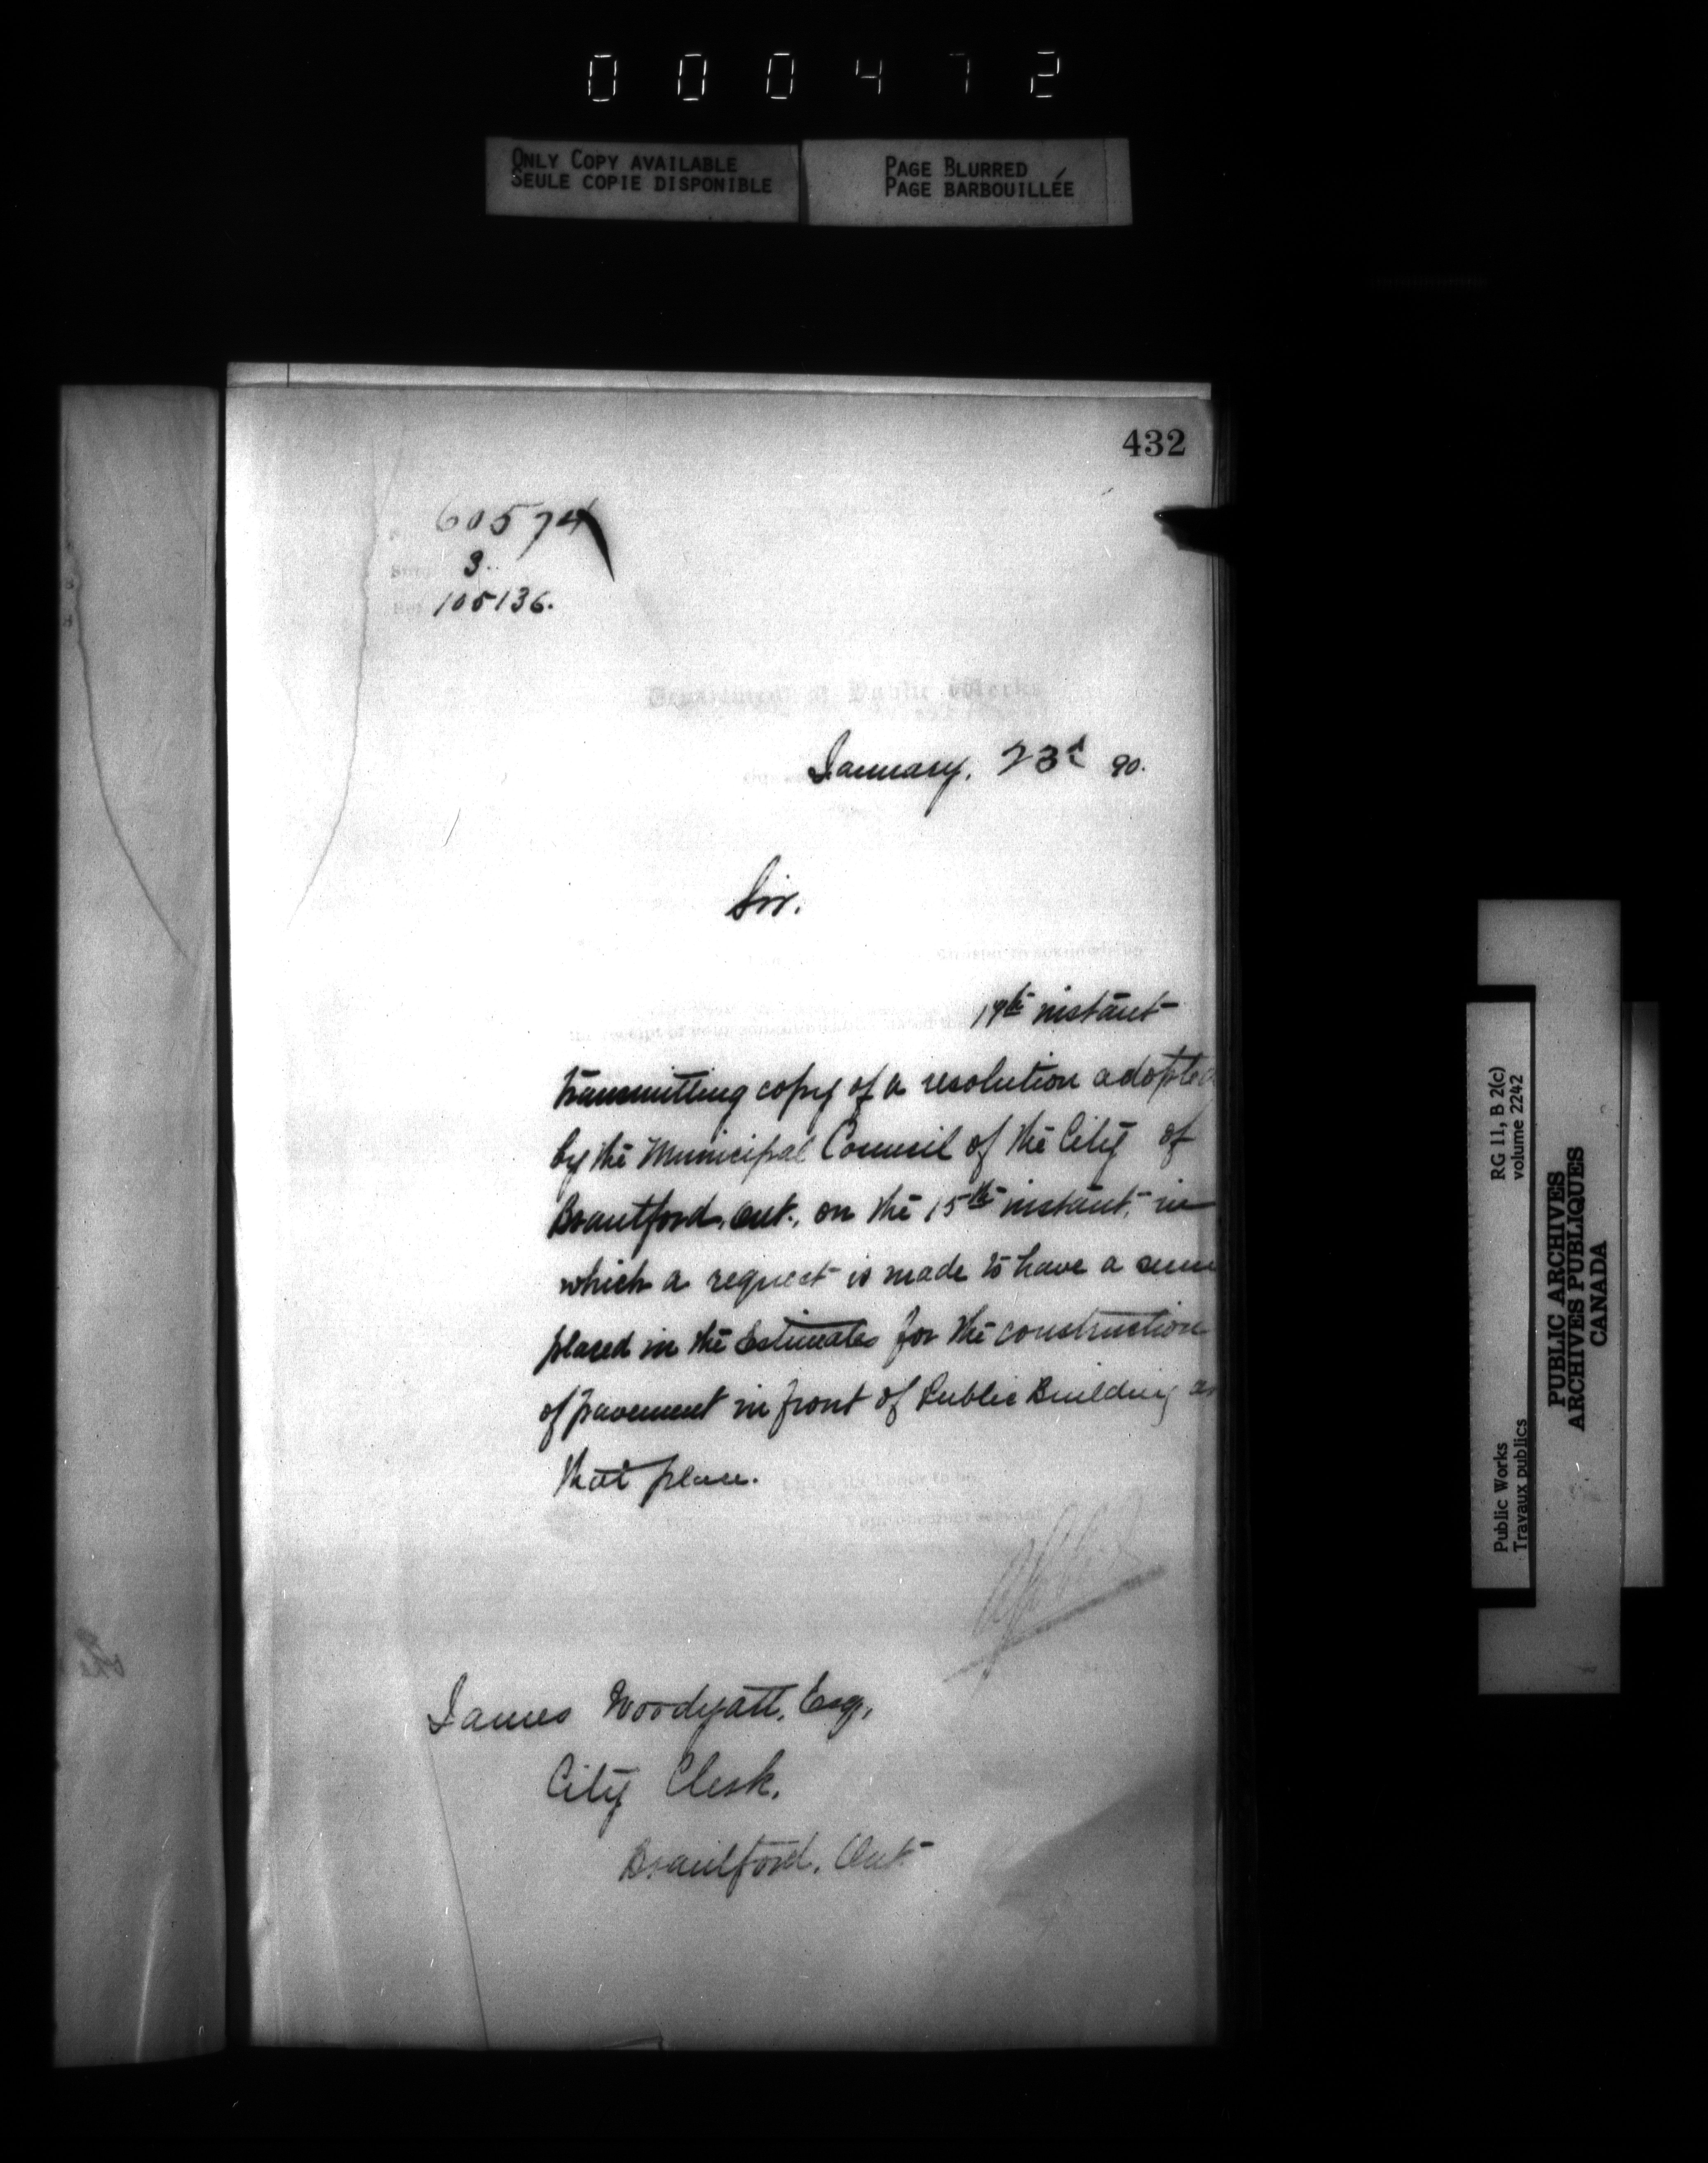 000472
ONLY COPY AVAILABLE
SEULE COPIE DISPONIBLE
PAGE BLURRED
PAGE BARBOUILLÉE
432
60574
3.
105136.
Department of Public Works
January, 23d 90.
Sir.
19th instant
transmitting copy of a resolution adopted
by the Municipal Council of the City of
Brantford, Ont., on the 15th instant, in
which a request is made to have a sum
placed in the Estimates for the construction
of pavement in front of Public Building
that place.
James Woodyatt, Esq,
City Clerk,
Brantford, Ont
RG 11, B 2(c)
volume 2242
Public Works
Travaux publics
PUBLIC ARCHIVES
ARCHIVES PUBLIQUES
CANADA